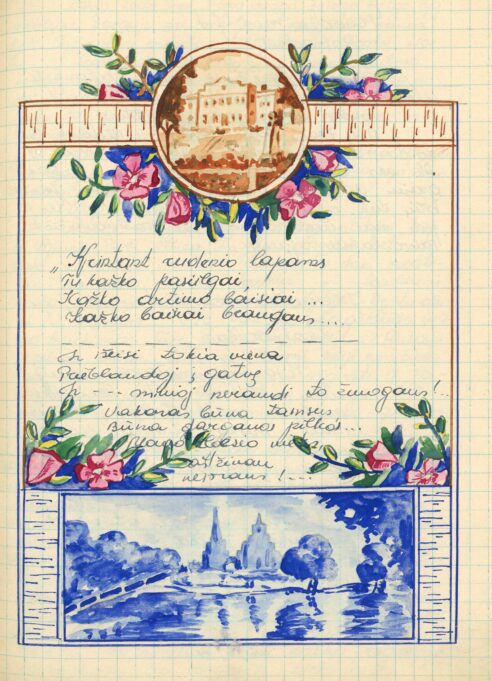 „Krintant rudenio lapams
Tu kažko pasilgai,
Kažko artimo baisiai ...
Kažko baisiai brangaus....
Ir išeisi tokia viena
Prieblandoj į gatvę
Ir - - - minioj nerandi to žmogaus!..
Vakaras būna tamsus
Būna darganos pilkos...